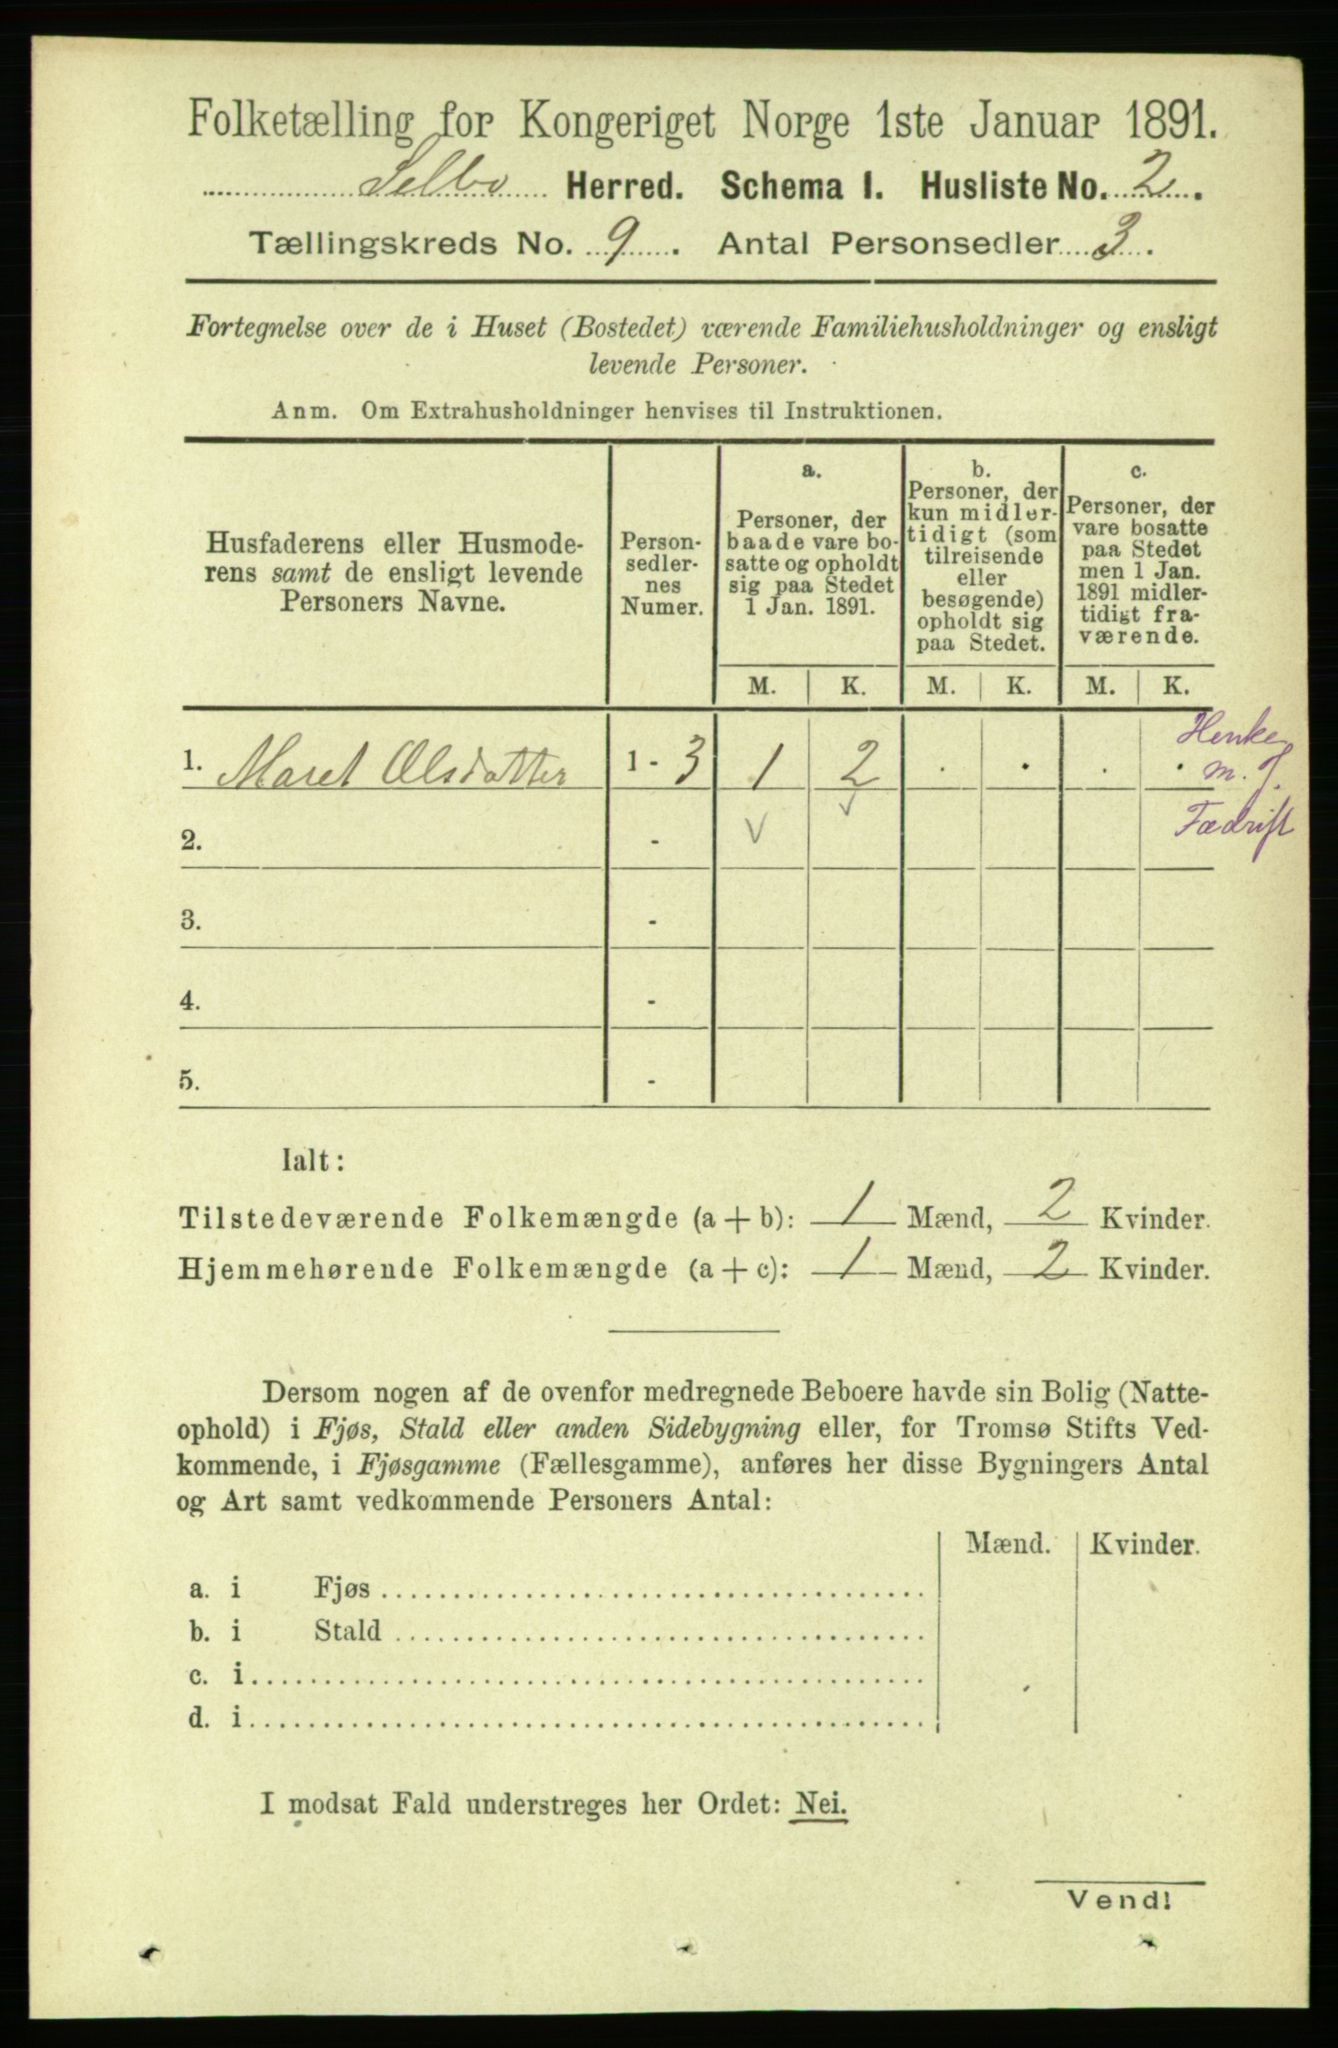 Folketælling for Kongeriget Norge 1ste Januar 1891.
Selbo Herred. Schema 1. Husliste No. 2.
Tællingskreds No. 9. Antal Personsedler 3.
Fortegnelse over de i Huset (Bostedet) værende Familiehusholdninger og ensligt
levende Personer.
Anm. Om Extrahusholdninger henvises til Instruktionen.
Husfaderens eller Husmode-
rens samt de ensligt levende
Personers Navne.
Person-
sedler-
nes
Numer.
a.
Personer, der
baade vare bo-
satte og opholdt
sig paa Stedet
1 Jan. 1891.
b.
Personer, der
kun midler-
tidigt (som
tilreisende
eller
besøgende)
opholdt sig
paa Stedet.
c.
Personer, der
vare bosatte
paa Stedet
men 1 Jan.
1891 midler-
tidigt fra-
værende.
M. K. M. K. M. K.
1. Maret Olsdatter 1 - 3 1 2 . . . .
Henke
m. J.
Fædrift
2. -
3. -
4. -
5. -
Ialt:
Tilstedeværende Folkemængde (a + b): 1 Mænd, 2 Kvinder.
Hjemmehørende Folkemængde (a + c): 1 Mænd, 2 Kvinder.
Dersom nogen af de ovenfor medregnede Beboere havde sin Bolig (Natte-
ophold) i Fjøs, Stald eller anden Sidebygning eller, for Tromsø Stifts Ved-
kommende, i Fjøsgamme (Fællesgamme), anføres her disse Bygningers Antal
og Art samt vedkommende Personers Antal:
Mænd. Kvinder.
a. i Fjøs
b. i Stald
c. i
d. i
I modsat Fald understreges her Ordet: Nei.
Vend!